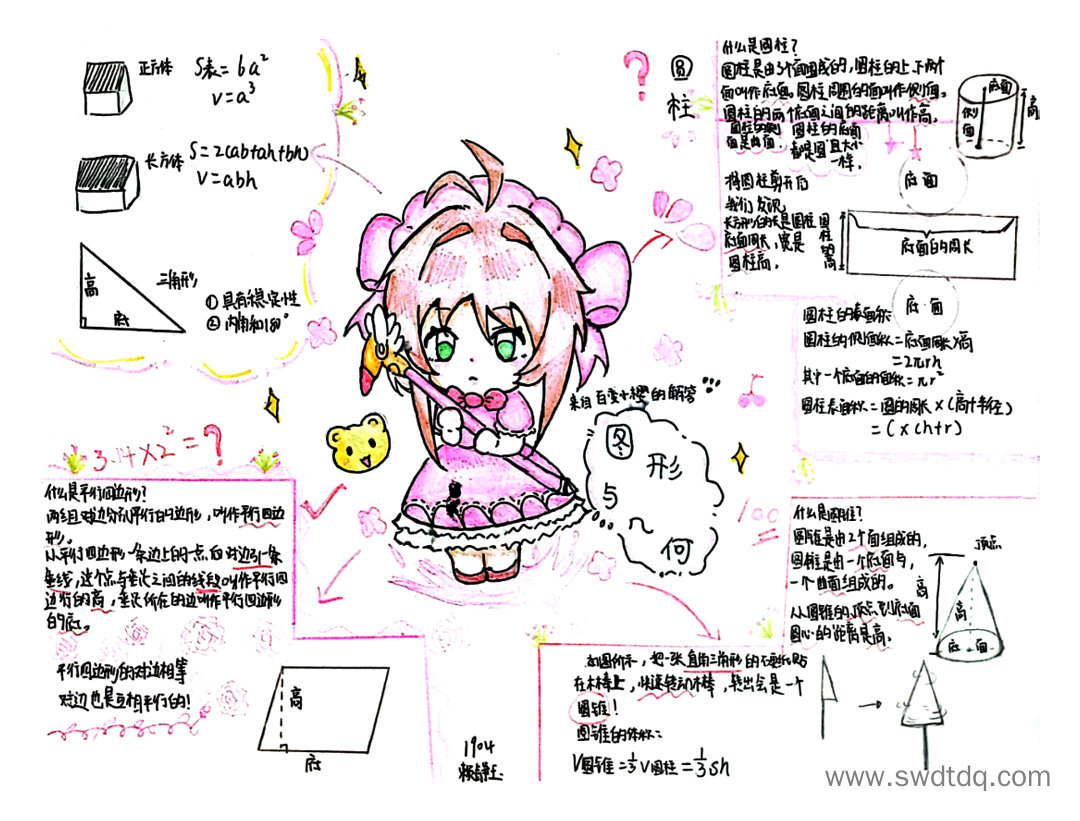 正方体 S表=6a²
V=a³
长方体 S=2(ab+ah+bh)
V=abh
高
底
三角形
① 具有稳定性
② 内角和180°
3.14×2²=?
什么是平行四边形?
两组对边分别平行的四边形,叫作平行四边
形。
从平行四边形一条边上的一点向对边引一条
垂线,这个点与垂足之间的线段叫作平行四
边行的高,垂足所在的边叫作平行四边形
的底。
平行四边形的对边相等
对边也是互相平行的!
高
底
来自百变小樱的解答
图
形
与
几
何
1904
圆
柱
什么是圆柱?
圆柱是由3个面组成的,圆柱的上、下两个
面叫作底面。圆柱周围的面叫作侧面。
圆柱的两个底面之间的距离叫作高。
圆柱的侧
面是曲面.
圆柱的底面
都是圆且大小
一样。
底面
侧
面
高
将圆柱剪开后
我们发现
长方形的长是圆柱
底面周长,宽是
圆柱高.
圆
柱
的
高
底面
底面的周长
底面
圆柱的表面积:
圆柱的侧面积=底面周长×高
=2πrh
其中一个底面的面积=πr²
圆柱表面积=圆的周长×(高+半径)
=C×(h+r)
100
什么是圆锥?
圆锥是由2个面组成的,
圆锥是由一个底面与,
一个曲面组成的。
从圆锥的顶点到底面
圆心的距离是高。
顶点
高
高
底面
如图所示,把一张直角三角形的硬纸贴
在木棒上,快速转动木棒,转出会是一个
圆锥!
圆锥的体积:
V圆锥=⅓V圆柱=⅓sh
www.swdtdq.com